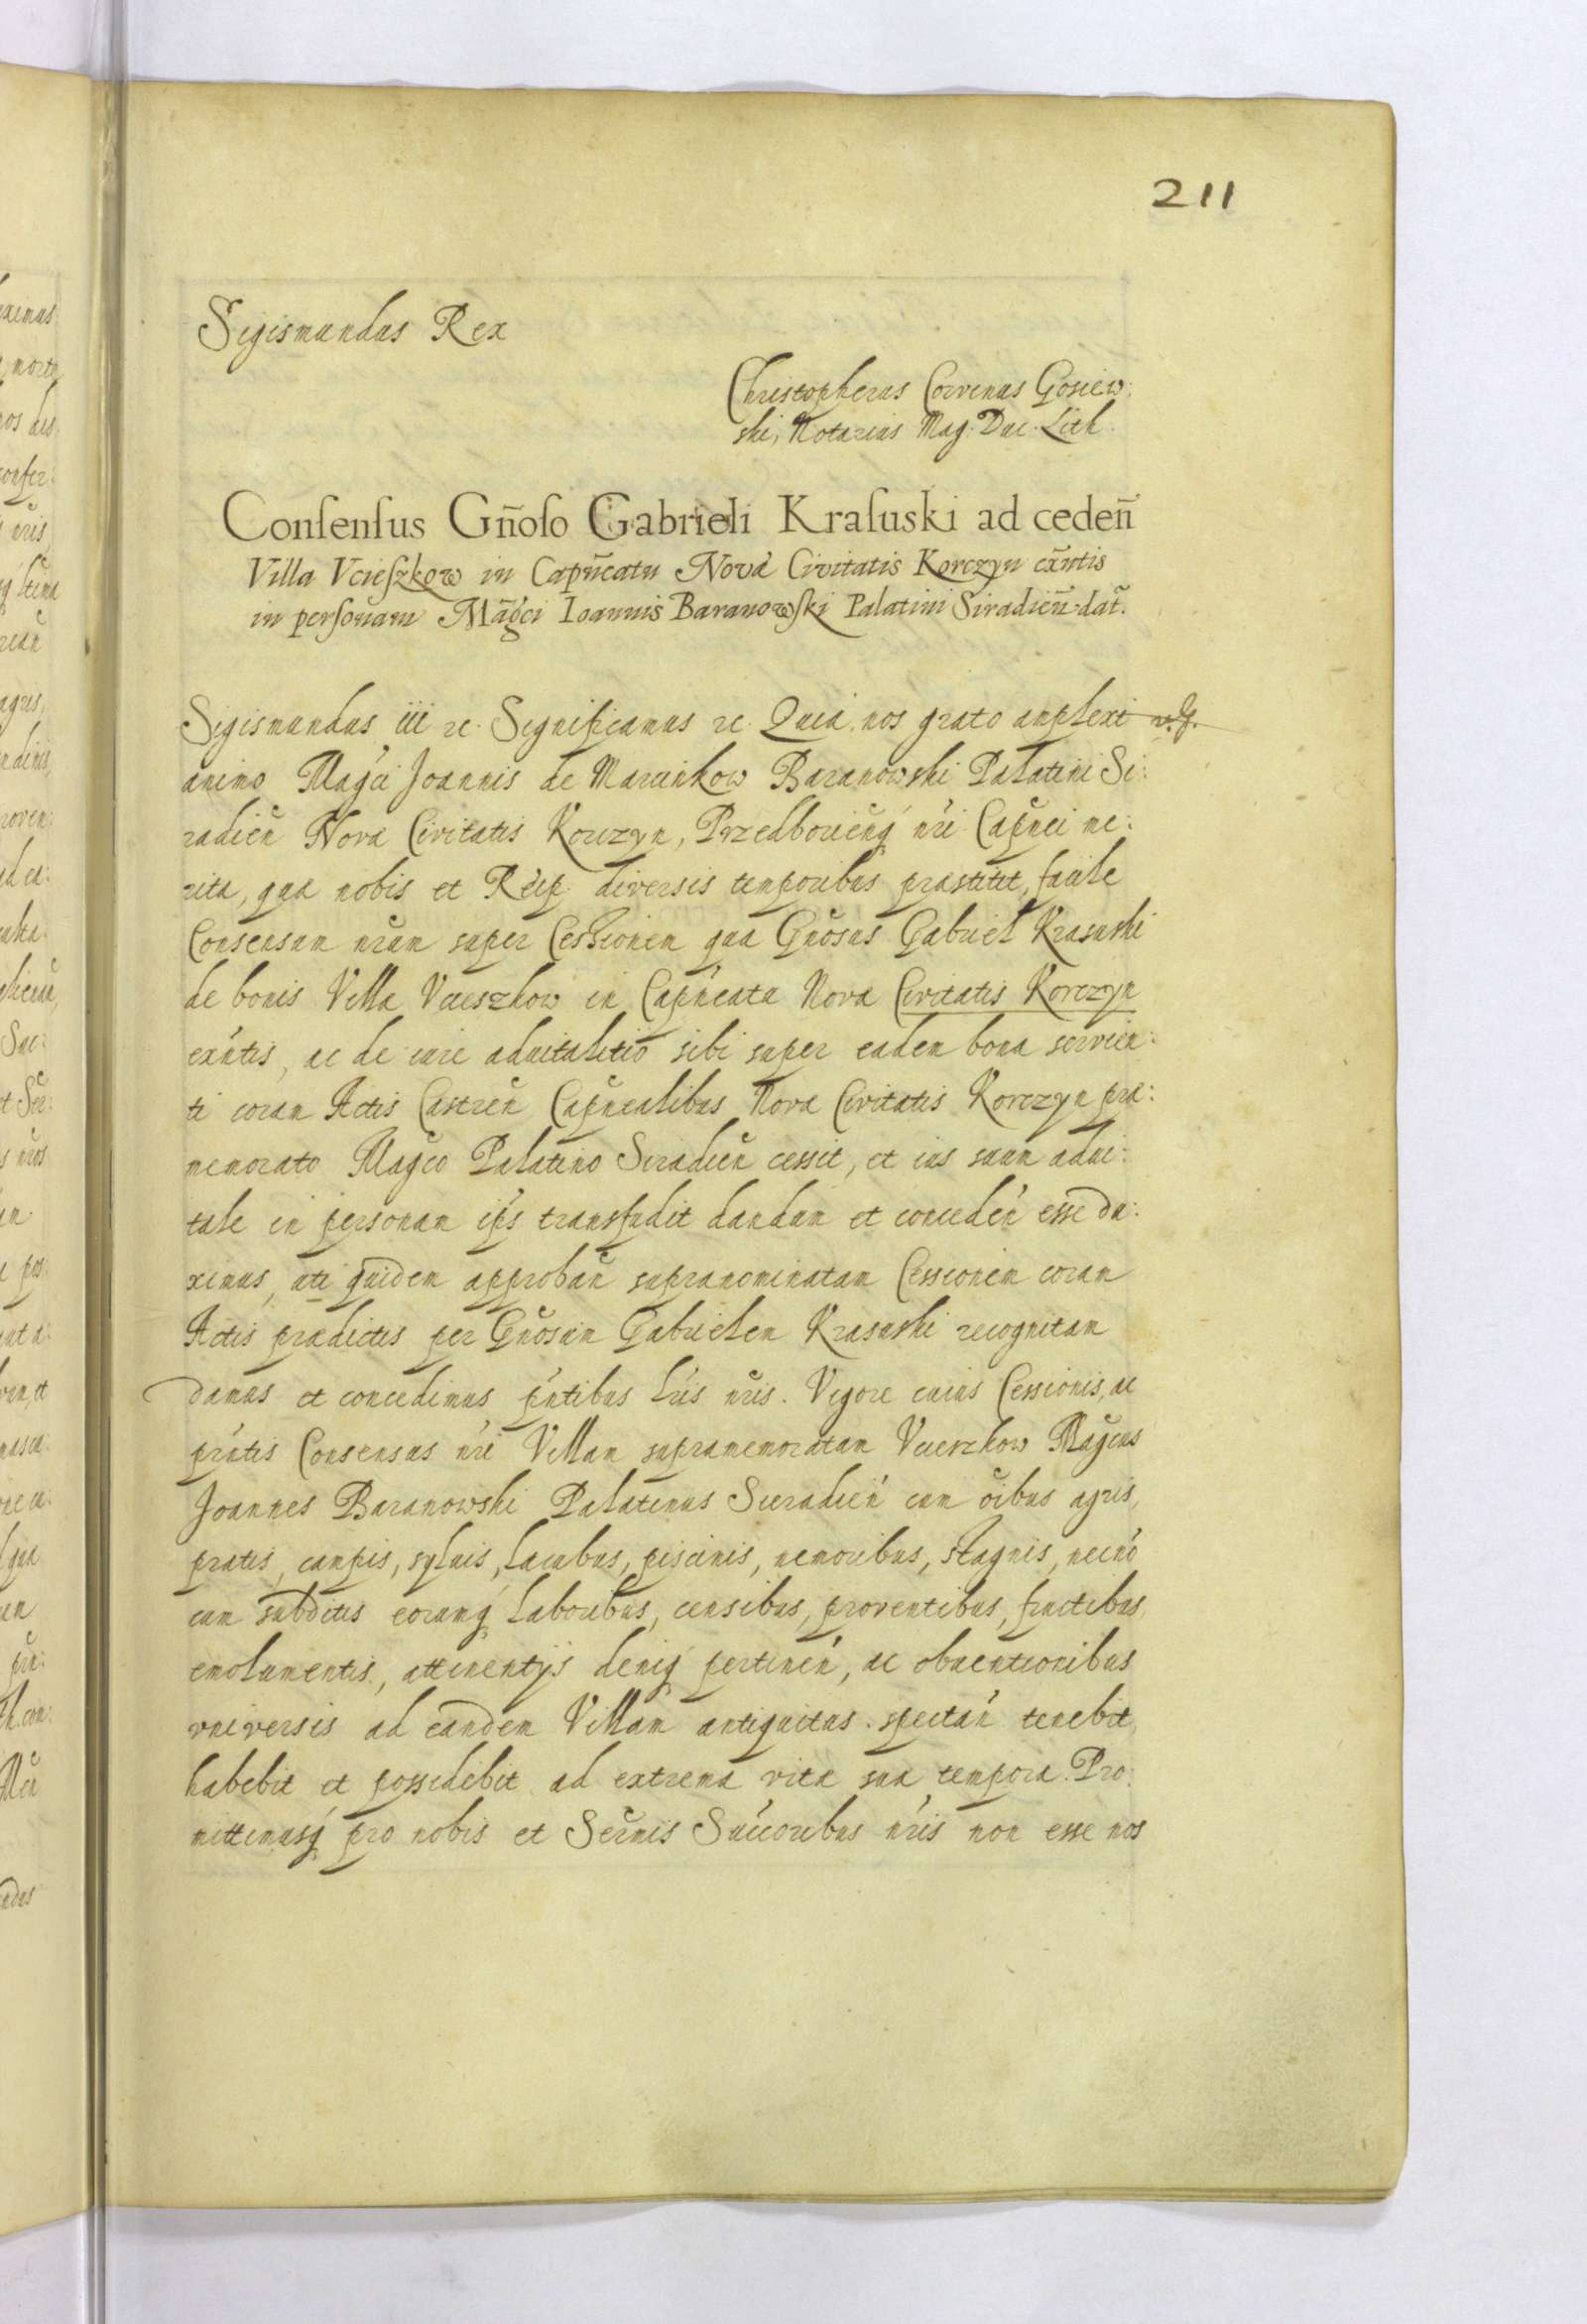 211
Sigismundus Rex
Christopherus Corvinus Gosiew:
ski, Notarius Mag. Duc. Lith.
Conſenſus Gñoſo Gabrieli Kraſuski ad cedeñ
Villa Vcieſzkow in Capñcatu Nova Civitatis Korczyn exñtis
in perſonam Mãgci Ioannis Baranowſki Palatini Siradieñ dat̃.
Sigismundus iii rc. Significamus rc. Quia nos grato amplexi
animo Mag̃ci Joannis de Marcinkow Baranowski Palatini Si:
radieñ Nova Civitatis Korczyn, Przedborieñq́ nr̃i Cap̃nei me:
rita, qua nobis et Reip. diversis temporibus prastitit, facile
Consensum nr̃um super Cessionem qua Gñosus Gabriel Krasuski
de bonis Villa Vcieszkow in Cap̃neatu Nova Civitatis Korczyn
exñtis, ac de iure aduitalitio sibi super eadem bona servien:
ti coram Actis Castreñ Cap̃nealibus Nova Civitatis Korczyn pra:
memorato Mag̃co Palatino Siradieñ cessit, et ius suum adui:
tale in personam ip̃s transfudit dandum et concedeñ esse du:
ximus, uti quidem approbañ supranominatam Cessionem coram
Actis prædictis per Gñosum Gabrielem Krasuski recognitam
damus et concedimus p̃ntibus lr̃is nr̃is. Vigore cuius Cessionis, ac
pr̃ntis Consensus nr̃i Villam supramemoratam Vcieszkow Mag̃cus
Joannes Baranowski Palatinus Sieradieñ cum oĩbus agris,
pratis, campis, syluis, lacubus, piscinis, nemoribus, stagnis, necnõ
cum subditis eorumq́ laboribus, censibus, proventibus, fructibus,
emolumentis, attinentijs deniq́ pertineñ, ac obuentionibus
vniversis ad eandem Villam antiquitus spectañ tenebit,
habebit et possidebit ad extrema vita sua tempora. Pro:
mittimusq́ pro nobis et Serm̃is Succoribus nr̃is non esse nos